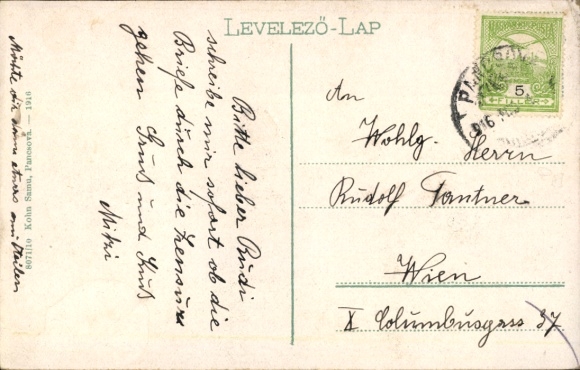 LEVELEZŐ-LAP
PANCSOVA
916
5
FILLÉR
An
Wohlg. Herrn
Rudolf Tantner
Wien
X Columbusgass 37
Bitte lieber Rudi
schreibe mir sofort ob die
Briefe durch die Zensur
gehen Gruß und Kuß
Mitzi
Möchte dir dann etwas mitteilen
8071/10 Kohn Samu, Pancsova. — 1916